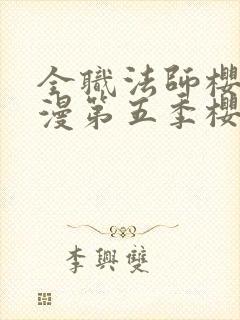 全職法師櫻
漫第五季櫻
李興雙